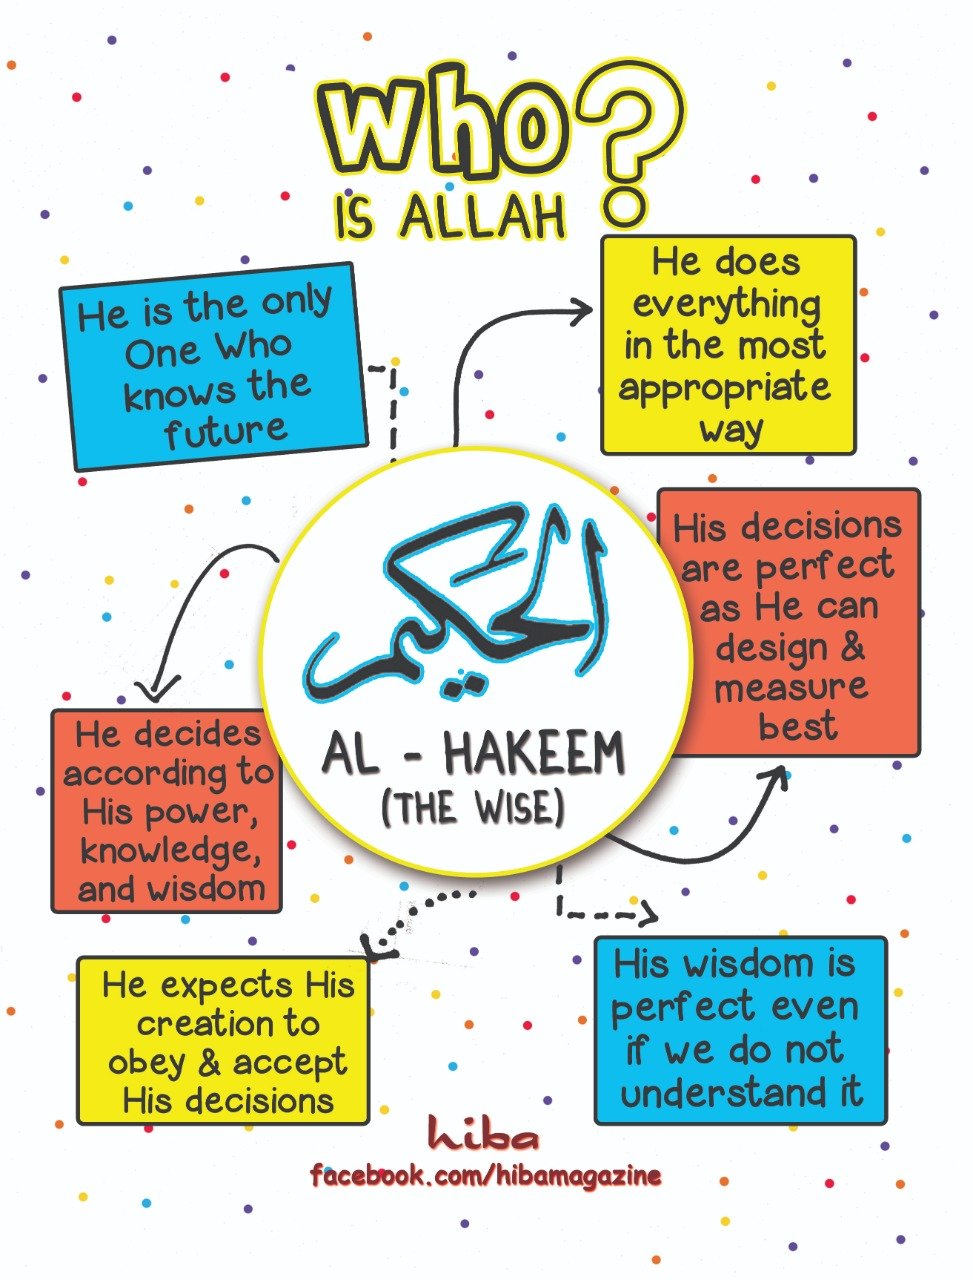 who?
IS ALLAH
He is the only
One Who
knows the
future
He does
everything
in the most
appropriate
way
His decisions
are perfect
as He can
design &
measure
best
الحكيم
AL - HAKEEM
(THE WISE)
He decides
according to
His power,
knowledge,
and wisdom
He expects His
creation to
obey & accept
His decisions
His wisdom is
perfect even
if we do not
understand it
hiba
facebook.com/hibamagazine